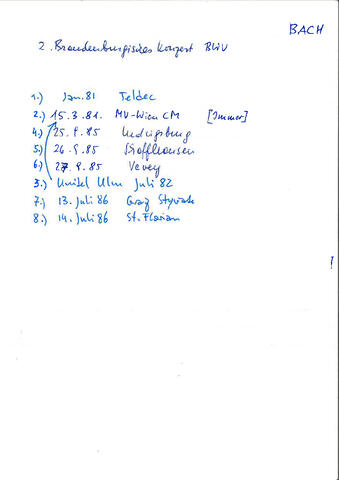 BACH
2. Brandenburgisches Konzert BWV
1.) Jan. 81 Teldec
2.) 15.3.81. MV-Wien CM [Immer]
4.) 25.9.85 Ludwigsburg
5.) 26.9.85 Schaffhausen
6.) 27.9.85 Vevey
3.) Unitel Ulm Juli 82
7.) 13. Juli 86 Graz Styriarte
8.) 14. Juli 86 St. Florian